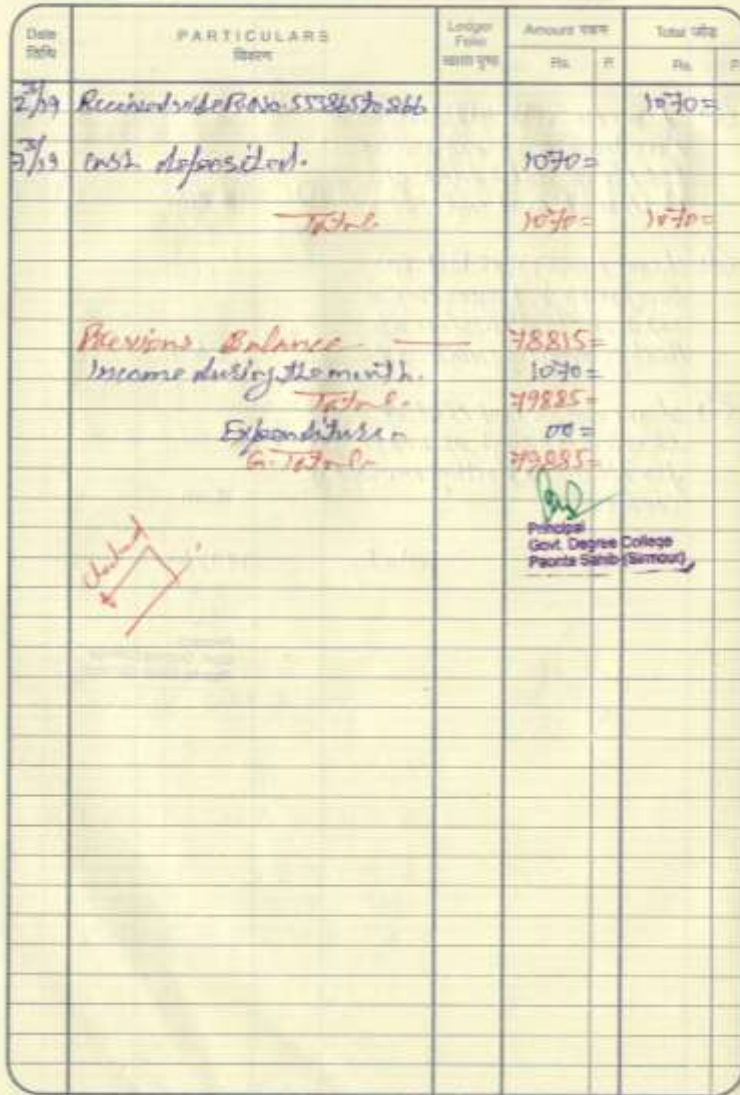 Date PARTICULARS Ledger Folio Amount रकम Total जोड़
तिथि विवरण खाता पृष्ठ Rs. P. Rs. P.
Received vide R.No. 1070=
cash deposited. 1070=
Total 1070= 1070=
Previous Balance 78815=
Income during the month. 1070=
Total. 79885=
Expenditure 00=
G. Total 79885=
Principal
Govt. Degree College
Paonta Sahib (Sirmour)
Checked